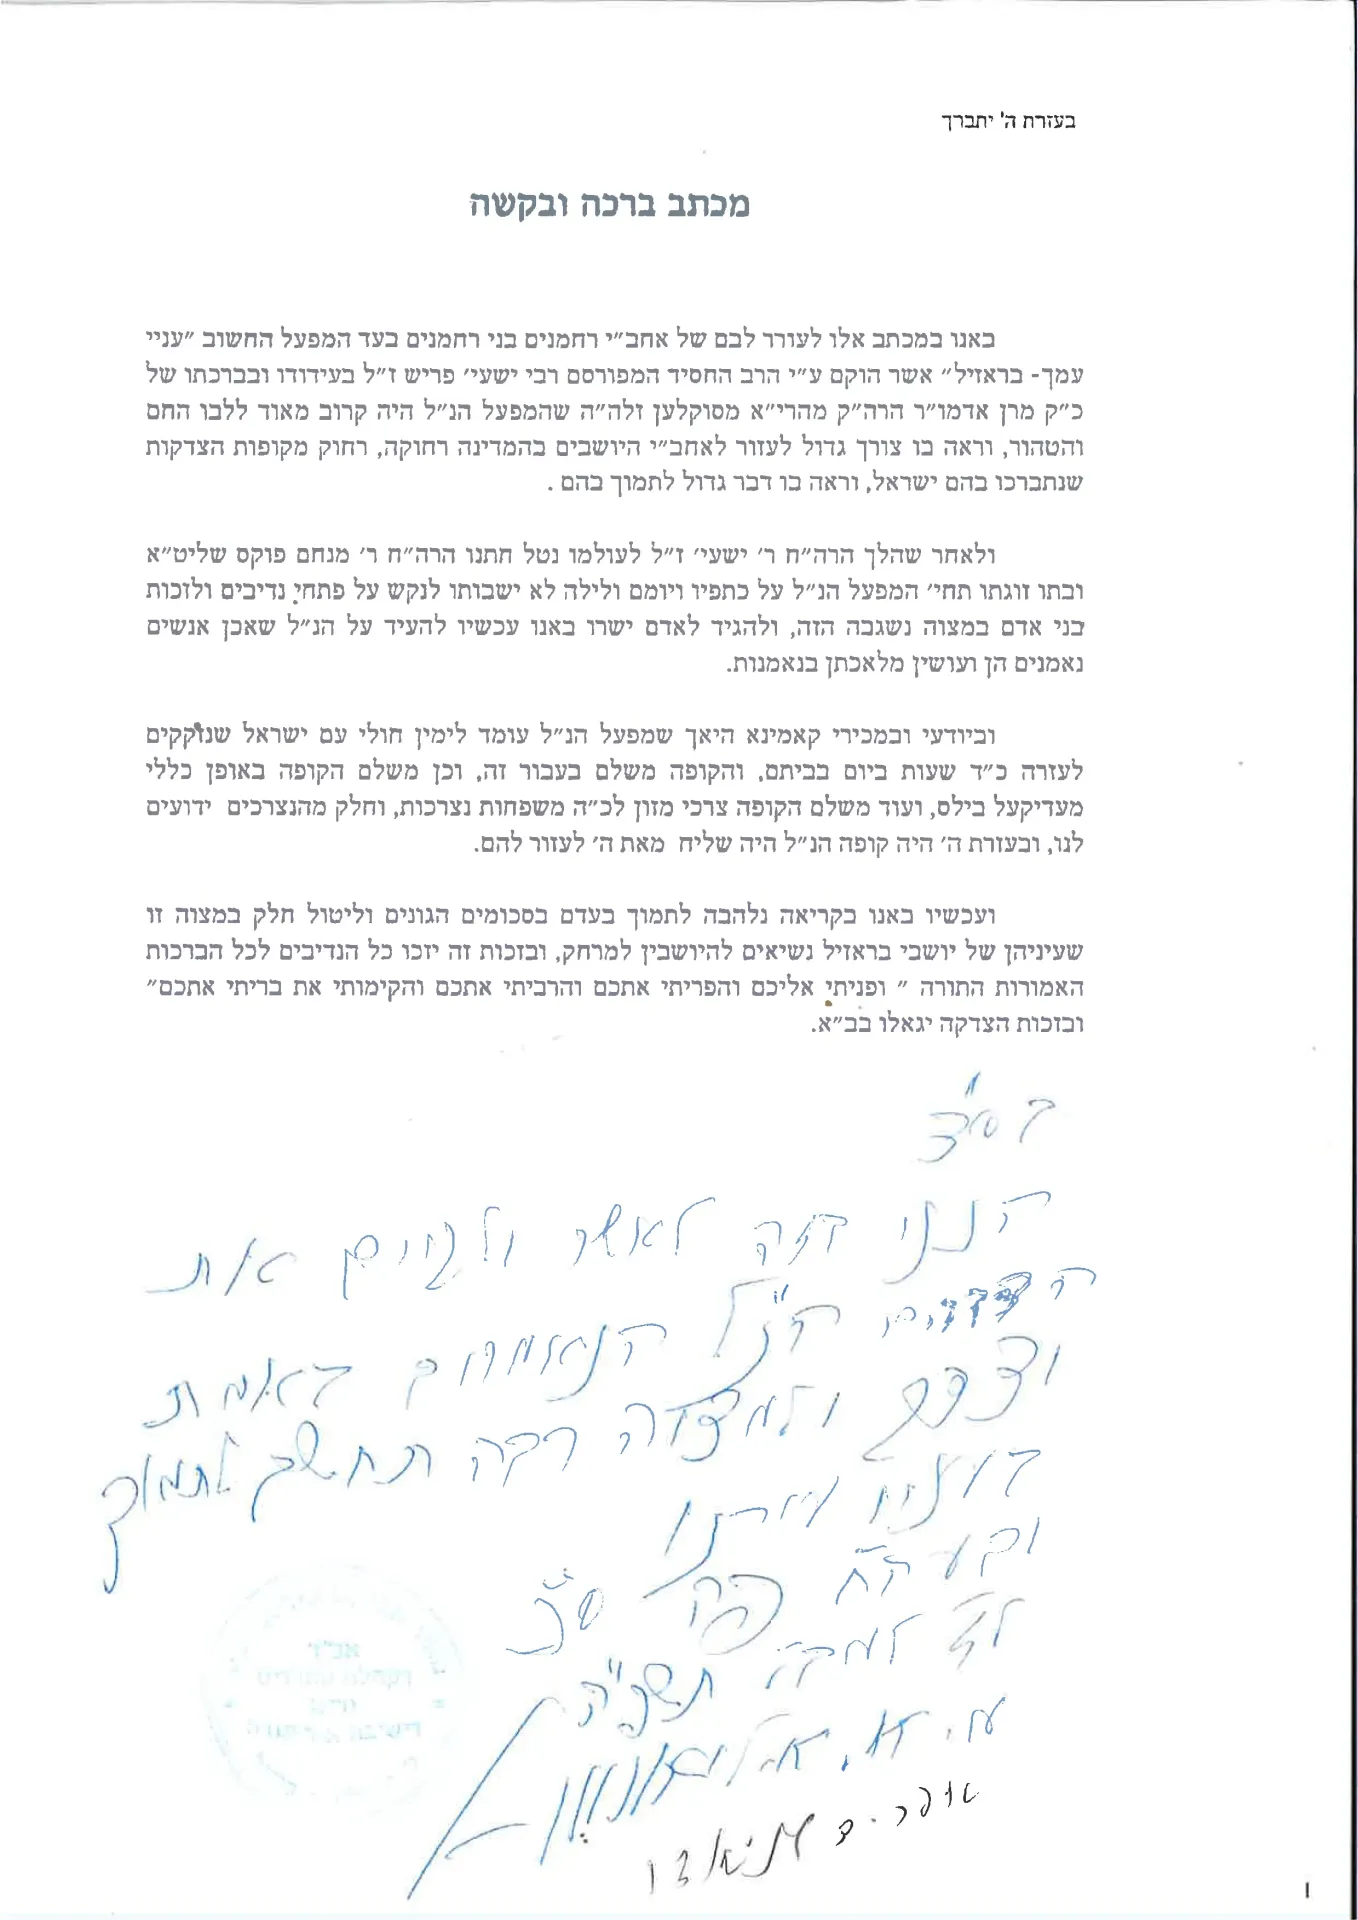 בעזרת ה' יתברך
מכתב ברכה ובקשה
באנו במכתב אלו לעורר לבם של אחב״י רחמנים בני רחמנים בעד המפעל החשוב ״עניי
עמך- בראזיל״ אשר הוקם ע״י הרב החסיד המפורסם רבי ישעי׳ פריש ז״ל בעידודו ובברכתו של
כ״ק מרן אדמו״ר הרה״ק מהרי״א מסוקלען זלה״ה שהמפעל הנ״ל היה קרוב מאוד ללבו החם
והטהור, וראה בו צורך גדול לעזור לאחב״י היושבים בהמדינה רחוקה, רחוק מקופות הצדקות
שנתברכו בהם ישראל, וראה בו דבר גדול לתמוך בהם .
ולאחר שהלך הרה״ח ר׳ ישעי׳ ז״ל לעולמו נטל חתנו הרה״ח ר׳ מנחם פוקס שליט״א
ובתו זוגתו תחי׳ המפעל הנ״ל על כתפיו ויומם ולילה לא ישבותו לנקש על פתחי נדיבים ולזכות
בני אדם במצוה נשגבה הזה, ולהגיד לאדם ישרו באנו עכשיו להעיד על הנ״ל שאכן אנשים
נאמנים הן ועושין מלאכתן בנאמנות.
וביודעי ובמכירי קאמינא היאך שמפעל הנ״ל עומד לימין חולי עם ישראל שנזקקים
לעזרה כ״ד שעות ביום בביתם, והקופה משלם בעבור זה, וכן משלם הקופה באופן כללי
מעדיקעל בילס, ועוד משלם הקופה צרכי מזון לכ״ה משפחות נצרכות, וחלק מהנצרכים ידועים
לנו, ובעזרת ה׳ היה קופה הנ״ל היה שליח מאת ה׳ לעזור להם.
ועכשיו באנו בקריאה נלהבה לתמוך בעדם בסכומים הגונים וליטול חלק במצוה זו
שעיניהן של יושבי בראזיל נשיאים להיושבין למרחק, ובזכות זה יזכו כל הנדיבים לכל הברכות
האמורות התורה ״ ופניתי אליכם והפריתי אתכם והרביתי אתכם והקימותי את בריתי אתכם״
ובזכות הצדקה יגאלו בב״א.
בס״ד
הנני בזה לאשר ולקיים את
הדברים הנ״ל הנאמרים באמת
וצדק ולמצוה רבה תחשב לתמוך
תשפ״ה
אב״ד
1